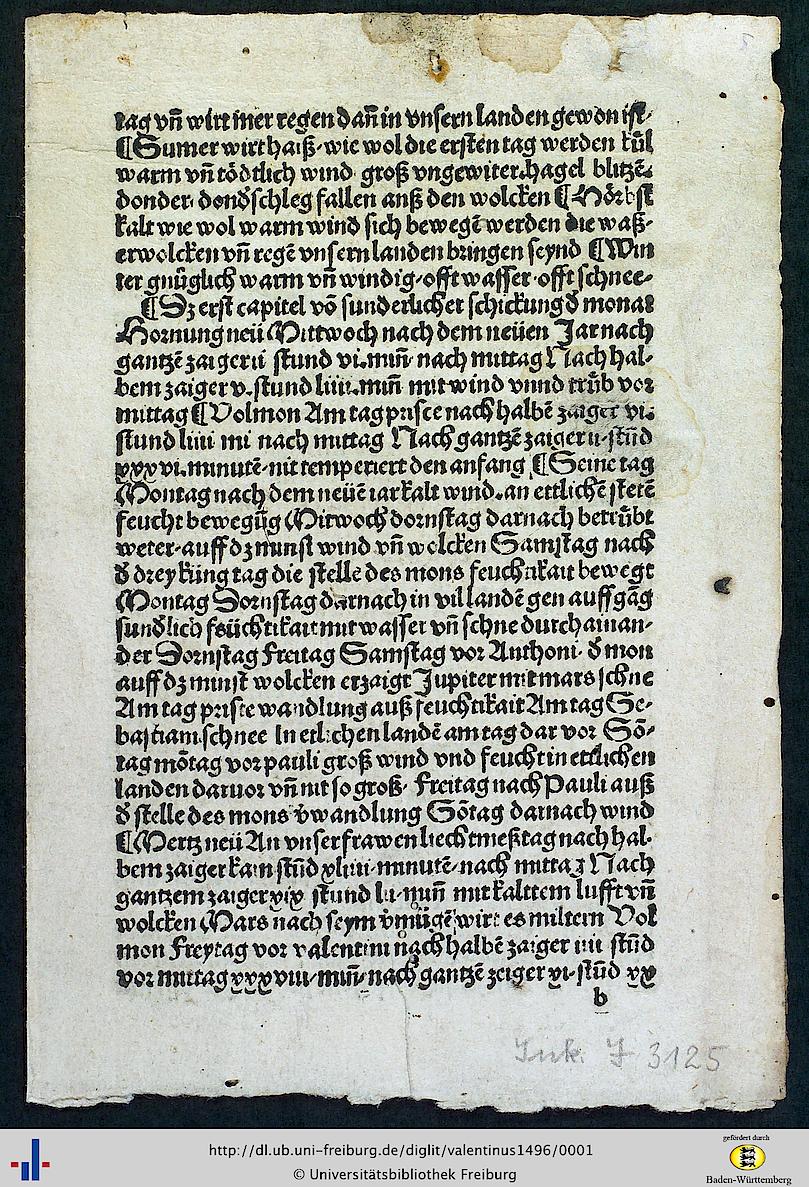 tag vñ wirt mer regen dañ in vnsern landen gewon ist·
¶ Sumer wirt haiß·wie wol die ersten tag werden kuͤl
warm vñ tödtlich wind groß vngewiter·hagel blitzē·
donder·dondʾschleg fallen auß den wolcken ¶ Hörbst
kalt wie wol warm wind sich bewegē werden die waß-
erwolcken vñ regē vnsern landen bringen seynd ¶ Win
ter gnüglich warm vñ windig·offt wasser·offt schnee·
¶ Dz erst capitel vō sunderlicher schickung dʾ monat
Hornung neü Mittwoch nach dem neüen Jar nach
gantzē zaiger ii stund vi·miñ nach mittag Nach hal-
bem zaiger v·stund liiii·miñ mit wind vnnd truͤb vor
mittag ¶ Volmon Am tag prisce nach halbē zaiger vi·
stund liiii mi nach mittag Nach gantzē zaiger ii·stūd
xxxvi·minutē·nit temperiert den anfang ¶ Seine tag
Montag nach dem neüē iar kalt wind·an ettlichē stetē
feucht bewegūg Mitwoch dornstag darnach betruͤbt
weter·auff dz minst wind vñ wolcken Samstag nach
dʾ drey küng tag die stelle des mons feuchtikait bewegt
Montag Dornstag darnach in vil landē gen auffgāg
sundʾlich feüchtikait mit wasser vñ schne durch ainan-
der Dornstag Freitag Samstag vor Anthoni· dʾ mon
auff dz minst wolcken erzaigt Jupiter mit mars schne
Am tag priste wandlung auß feuchtikait Am tag Se-
bastiani schnee In etlichen landē am tag dar vor Sō-
tag mōtag vor pauli groß wind vnd feucht in ettlichen
landen daruor vñ nit so groß· Freitag nach Pauli auß
dʾ stelle des mons vʾwandlung Sōtag darnach wind
¶ Mertz neü An vnser frawen liechtmeßtag nach hal-
bem zaiger kain stūd xliiii·minutē·nach mittag Nach
gantzem zaiger xix stund lii·miñ mit kalttem lufft vñ
wolcken Mars nach seym vʾmügē wirt es miltern Vol
mon Freytag vor valentini nach halbē zaiger iiii stūd
vor mittag xxxviii·miñ·nach gantzē zeiger xi·stūd xx
b
Ink. J 3125
http://dl.ub.uni-freiburg.de/diglit/valentinus1496/0001
© Universitätsbibliothek Freiburg
gefördert durch
Baden-Württemberg